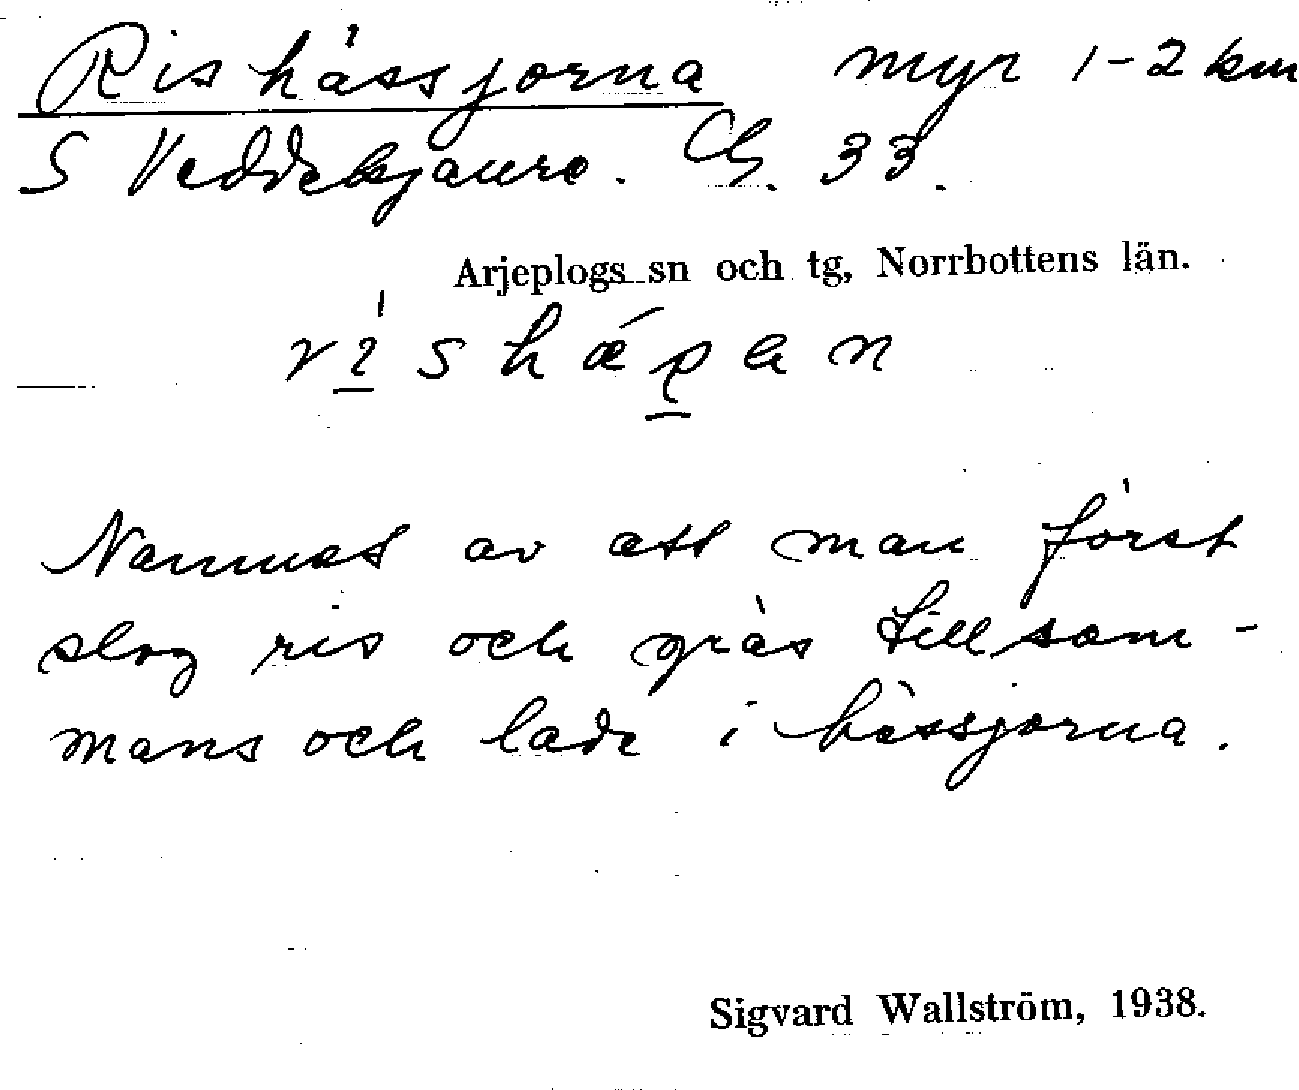 Rishässjorna myr 1-2 km
S Veddekjaure. Gb. 33.
Arjeplogs sn och tg, Norrbottens län.
Namnet av att man först
slog ris och gräs tillsam-
mans och lade i hässjorna.
Sigvard Wallström, 1938.